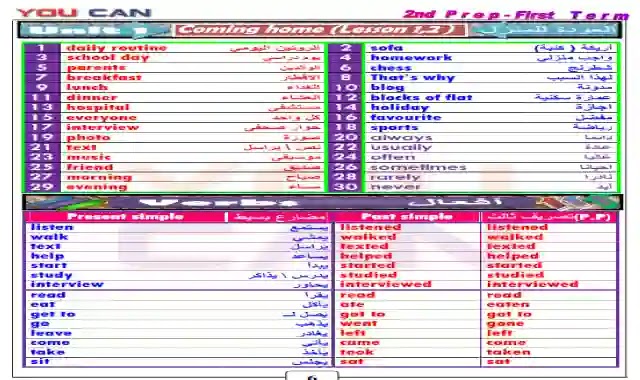 YOU CAN 2nd Prep-First Term
Unit 1 Coming home (Lesson 1,2) العودة للمنزل
1 daily routine الروتين اليومي 2 sofa أريكة (كنبة)
3 school day يوم دراسي 4 homework واجب منزلي
5 parents الوالدين 6 chess شطرنج
7 breakfast الافطار 8 That's why لهذا السبب
9 lunch الغداء 10 blog مدونة
11 dinner العشاء 12 blocks of flat عمارة سكنية
13 hospital مستشفى 14 holiday اجازة
15 everyone كل واحد 16 favourite مفضل
17 interview حوار صحفي 18 sports رياضة
19 photo صورة 20 always دائما
21 text نص \ يراسل 22 usually عادة
23 music موسيقى 24 often غالبا
25 friend صديق 26 sometimes احيانا
27 morning صباح 28 rarely نادرا
29 evening مساء 30 never أبد
Verbs أفعال
Present simple مضارع بسيط Past simple تصريف ثالث (P.P)
listen يستمع listened listened
walk يمشي walked walked
text يراسل texted texted
help يساعد helped helped
start يبدأ started started
study يدرس \ يذاكر studied studied
interview يحاور interviewed interviewed
read يقرأ read read
eat يأكل ate eaten
get to يصل لـ got to got to
go يذهب went gone
leave يغادر left left
come يأتي came come
take يأخذ took taken
sit يجلس sat sat